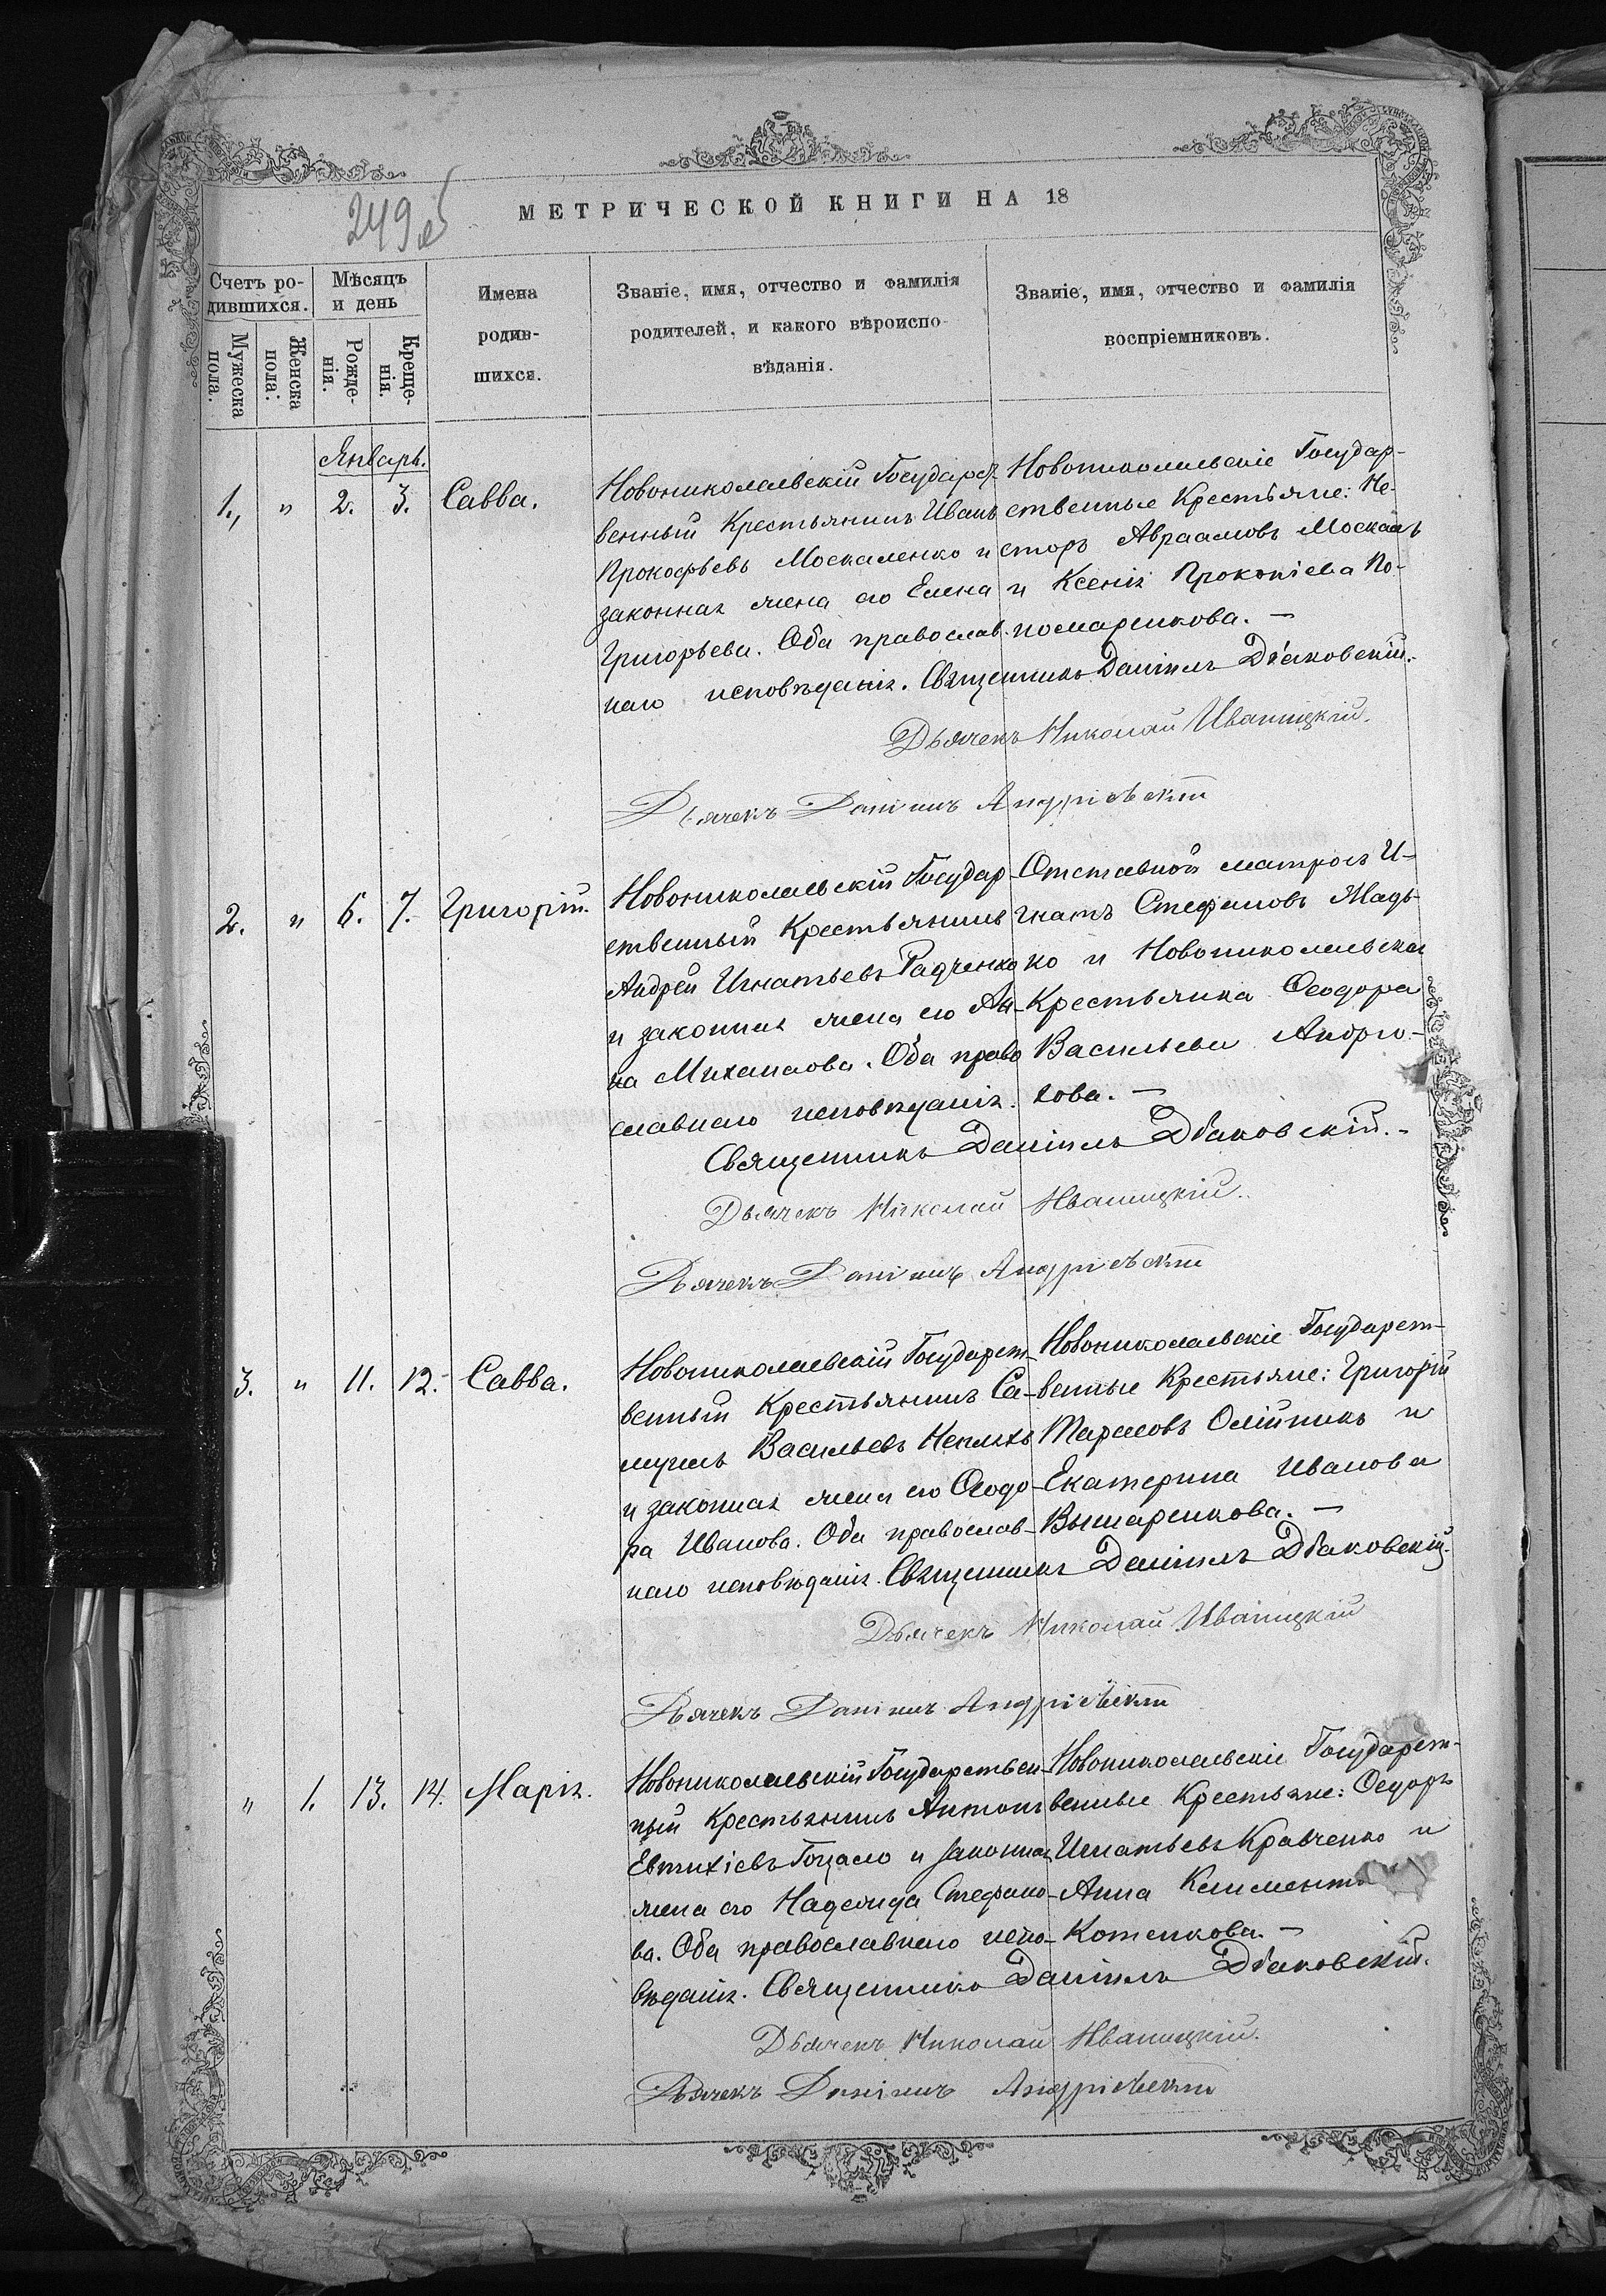 249
МЕТРИЧЕСКОЙ КНИГИ НА 18
Счетъ ро-
дившихся.
Мужеска пола.
Женска пола.
Мѣсяцъ
и день
Рожде-
нія.
Креще-
нія.
Имена
родив-
шихся.
Званіе, имя, отчество и фамилія
родителей, и какого вѣроиспо-
вѣданія.
Званіе, имя, отчество и фамилія
воспріемниковъ.
Январь.
1., " 2. 3. Савва.
Новониколаевскій Государст-
венный Крестьянинъ Иванъ
Прокофьевъ Москаленко и
законная жена его Елена
Григорьева. Оба православ-
наго исповѣданія.
Новониколаевскіе Государ-
ственные Крестьяне: Не-
сторъ Авраамовъ Москаль
и Ксенія Прокопіева По-
номаренкова. —
Священникъ Даніилъ Дьяковскій.
Дьячекъ Николай Иваницкій.
Дьячекъ Даніилъ Андріевскій
2. " 6. 7. Григорій.
Новониколаевскій Государ-
ственный Крестьянинъ
Андрей Игнатьевъ Радченко
и законная жена его Ан-
на Михайлова. Оба право
славнаго исповѣданія.
Отставной матросъ И-
гнатъ Стефановъ Жадь-
ко и Новониколаевская
Крестьянка Ѳеодора
Васильева Андрю-
кова. —
Священникъ Даніилъ Дьяковскій. -
Дьячекъ Николай Иваницкій.
Дьячекъ Даніилъ Андріевскій
3. " 11. 12. Савва.
Новониколаевскій Государст-
венный Крестьянинъ Са-
муилъ Васильевъ
и законная жена его Ѳеодо-
ра Иванова. Оба православ-
наго исповѣданія.
Новониколаевскіе Государст-
венные Крестьяне: Григорій
Тарасовъ Олійникъ и
Екатерина Иванова
Вышаренкова. —
Священникъ Даніилъ Дьяковскій.
Дьячекъ Николай Иваницкій
Дьячекъ Даніилъ Андріевскій
" 1. 13. 14. Марія.
Новониколаевскій Государствен-
ный Крестьянинъ Антонъ
Евтихіевъ Гоцало и законная
жена его Надежда Стефано-
ва. Оба православнаго испо-
вѣданія.
Новониколаевскіе Государст-
венные Крестьяне: Ѳедоръ
Игнатьевъ Кравченко и
Анна Климента
Котенкова. —
Священникъ Даніилъ Дьяковскій.
Дьячекъ Николай Иваницкій.
Дьячекъ Даніилъ Андріевскій